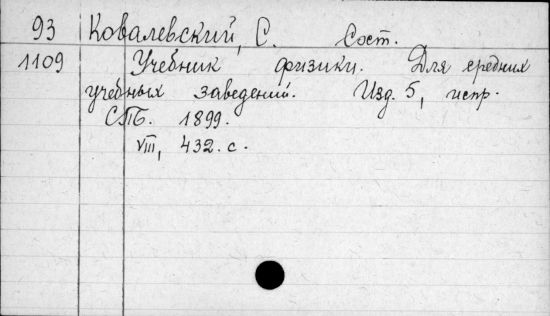 93 Ковалевский, С. Сост.
1109 Учебник физики. Для средних
учебных заведений. Изд. 5, испр.
СПБ. 1899.
VIII, 432. с.